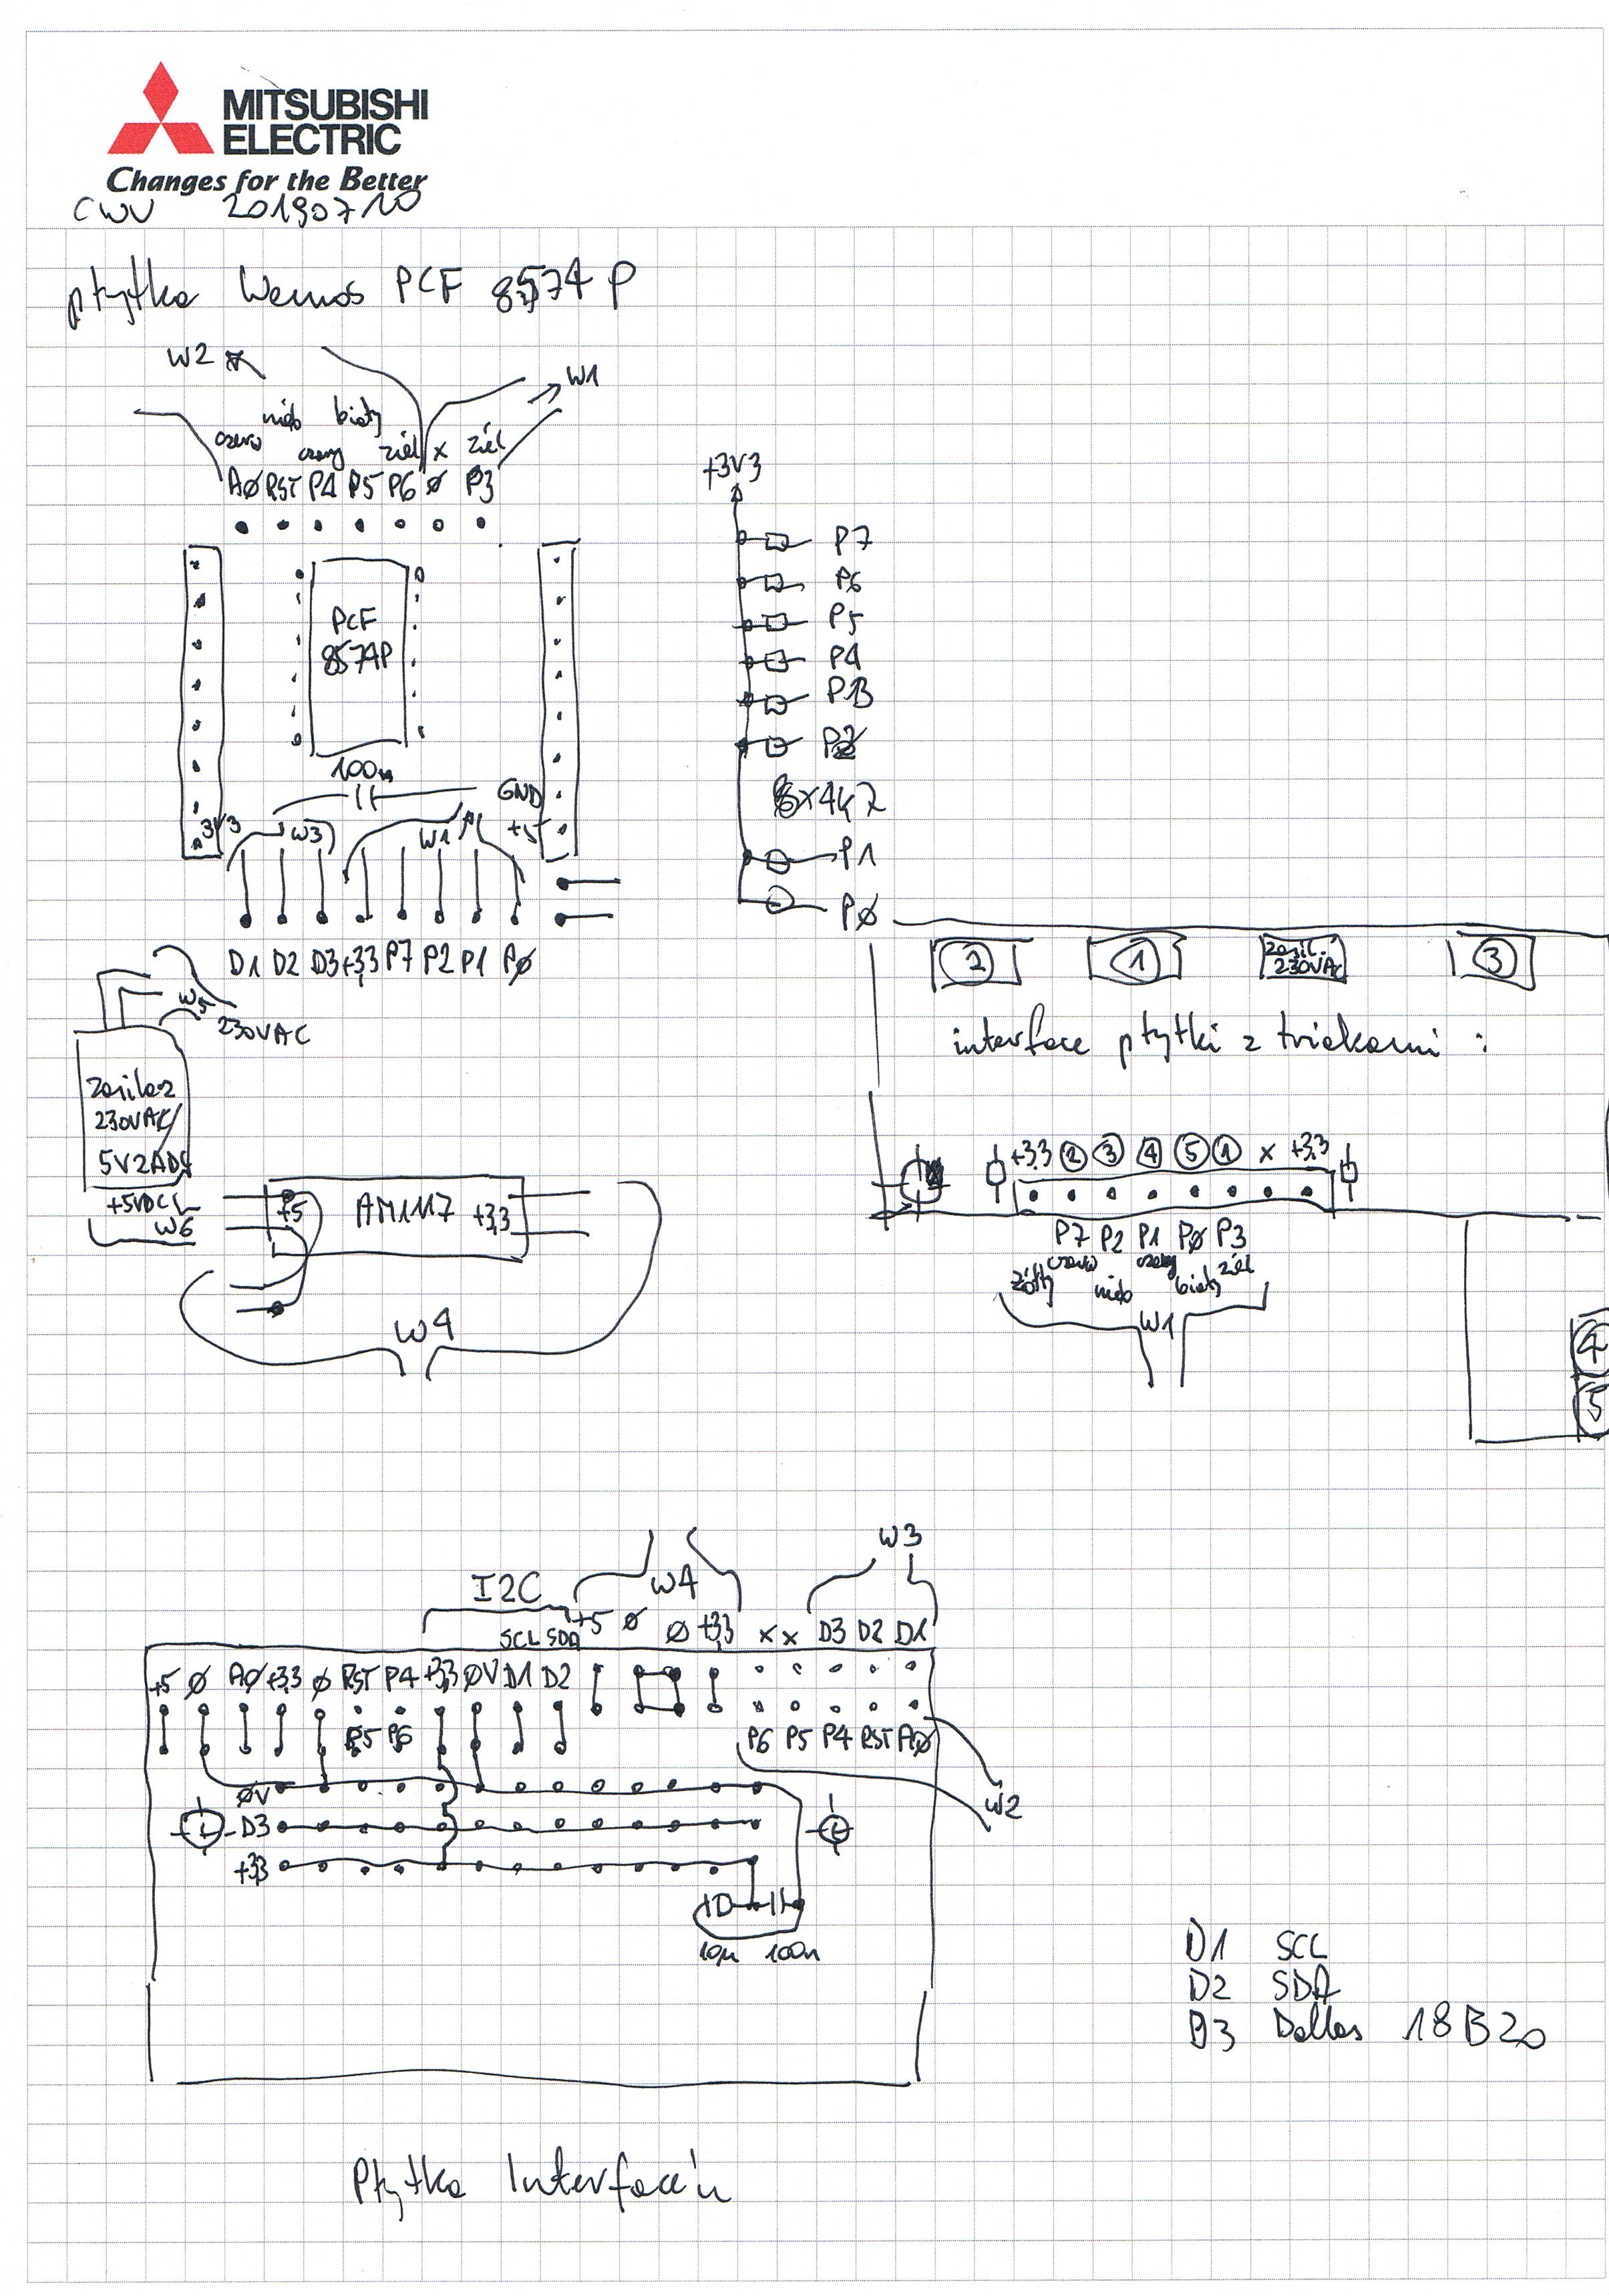 MITSUBISHI
ELECTRIC
Changes for the Better
CWU 20190710
płytka Wemos PCF 8574P
W2
W1
nieb biały
czerw czarny ziel x ziel
AØ RST P4 P5 P6 Ø P3
+3V3
P7
P6
P5
P4
P3
P2
8x4k7
P1
PØ
PCF
8574P
100n
GND
3V3 W3 W1 +5
D1 D2 D3 +3,3 P7 P2 P1 PØ
W5
230VAC
zasilacz
230VAC/
5V2ADC
+5VDC
W6
+5 AM1117 +3,3
W4
2 1 zasil. 3
230VAC
interface płytki z triakami :
+3,3 2 3 4 5 1 x +3,3
P7 P2 P1 PØ P3
żółty czerw nieb czarny biały ziel
W1
4
5
W3
I2C W4
SCL SDA +5 Ø Ø +3,3 x x D3 D2 D1
+5 Ø AØ +3,3 Ø RST P4 +3,3 ØV D1 D2
P5 P6 P6 P5 P4 RST AØ
ØV
W2
D3
+3,3
10µ 100n
D1 SCL
D2 SDA
D3 Dallas 18B20
Płytka Interface'u